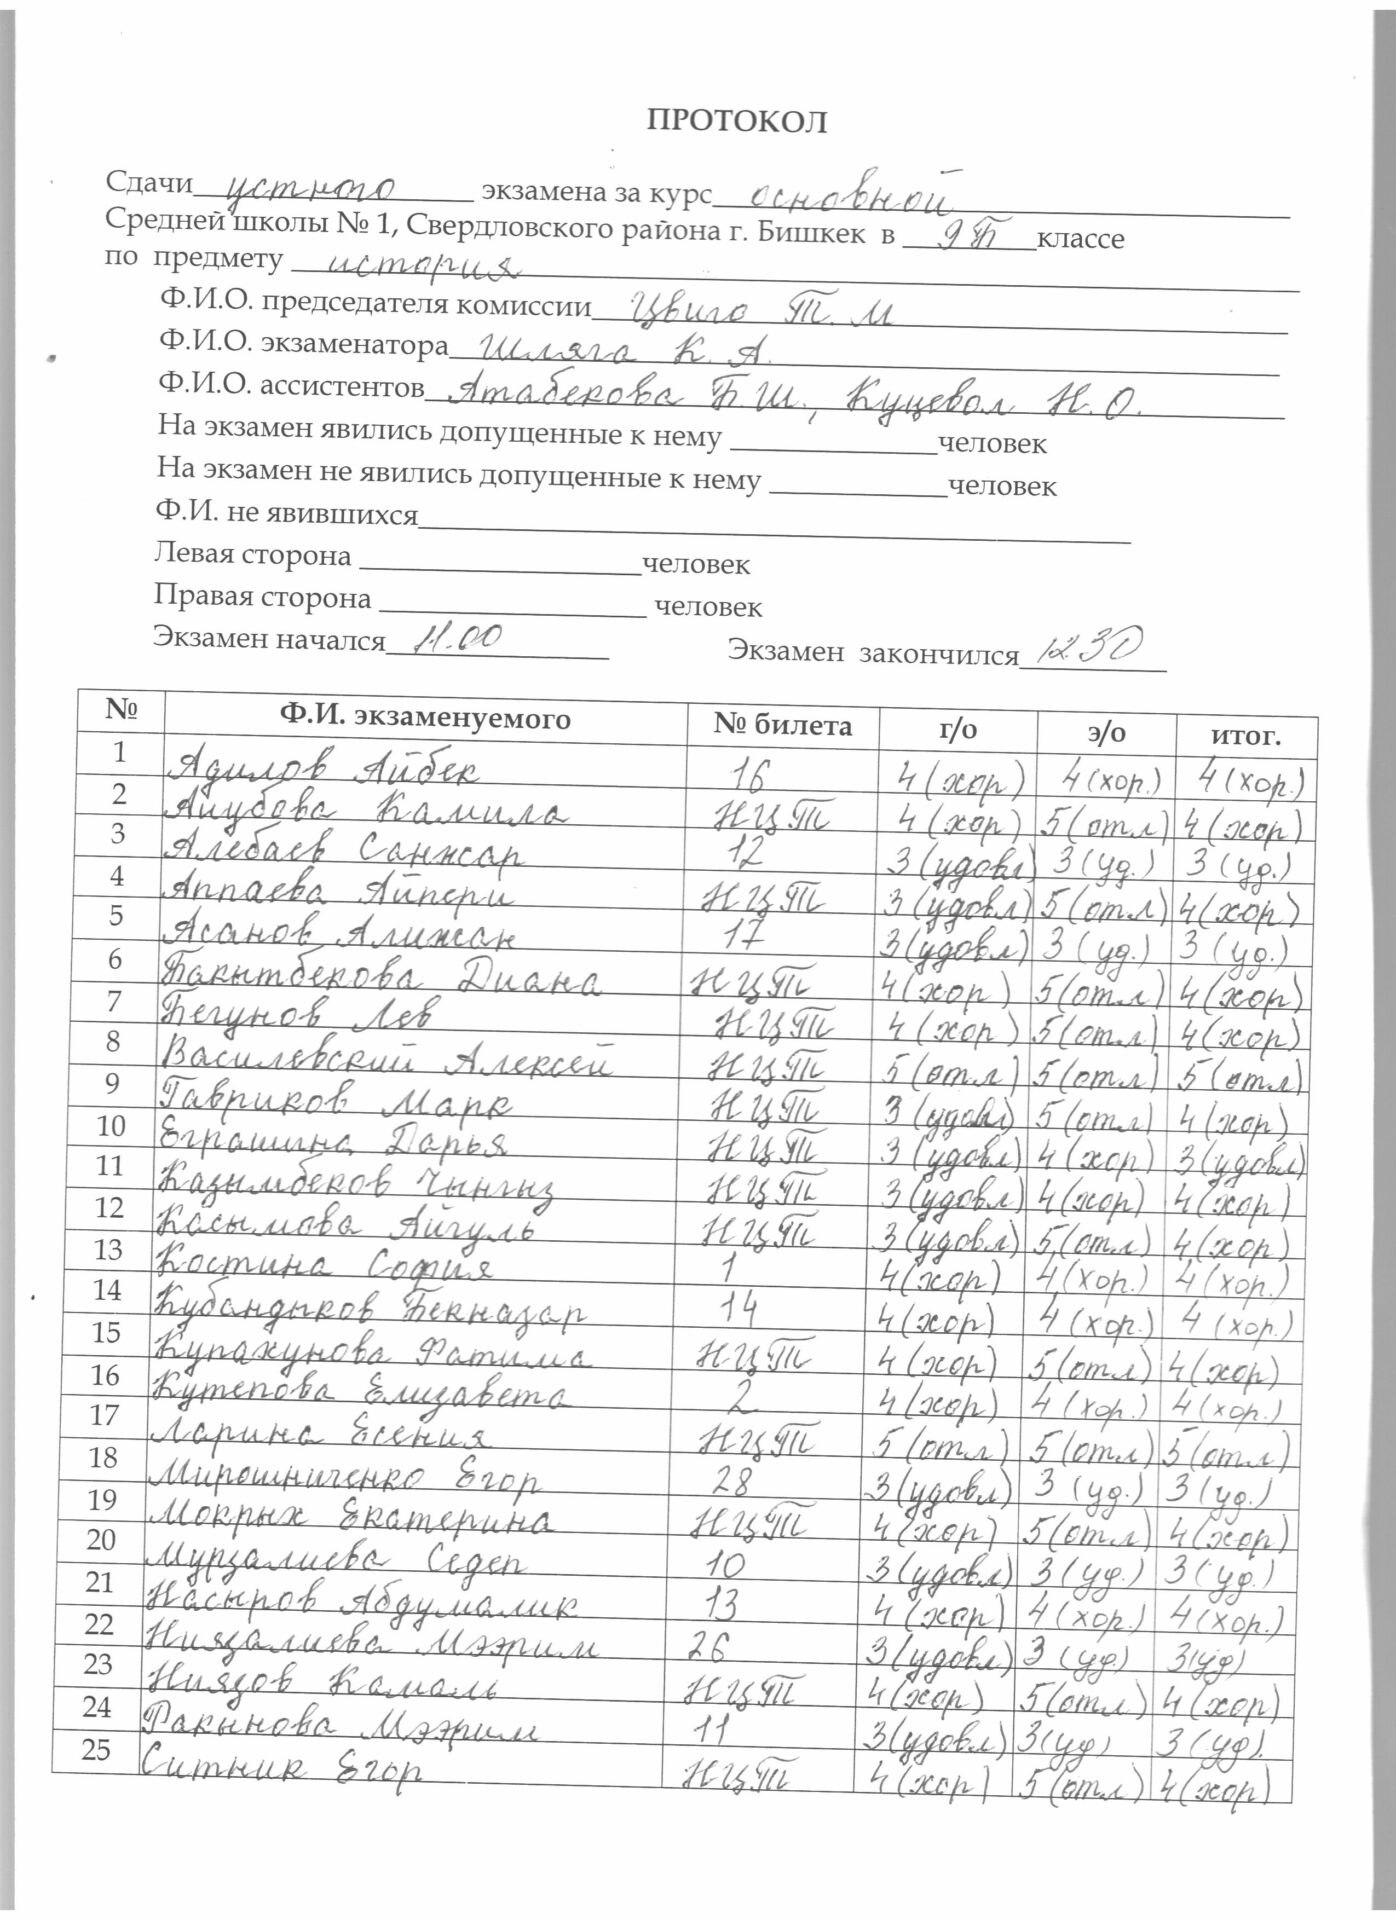 ПРОТОКОЛ
Сдачи устного экзамена за курс основной
Средней школы № 1, Свердловского района г. Бишкек в 9 Б классе
по предмету история
Ф.И.О. председателя комиссии Цвиго Т. М
Ф.И.О. экзаменатора Шляга К. А.
Ф.И.О. ассистентов Атабекова Б.Ш., Куцевол Н. О.
На экзамен явились допущенные к нему ____________ человек
На экзамен не явились допущенные к нему ____________ человек
Ф.И. не явившихся____________
Левая сторона ____________ человек
Правая сторона ____________ человек
Экзамен начался 11.00 Экзамен закончился 12 30
№ Ф.И. экзаменуемого № билета г/о э/о итог.
1 Адилов Айбек 16 4 (хор) 4 (хор.) 4 (хор.)
2 Аиубова Камила НЦТ 4 (хор) 5 (отл) 4 (хор)
3 Алебаев Санжар 12 3 (удовл) 3 (уд.) 3 (уд.)
4 Аппаева Айпери НЦТ 3 (удовл) 5 (отл) 4 (хор)
5 Асанов Алижан 17 3 (удовл) 3 (уд.) 3 (уд.)
6 Бакытбекова Диана НЦТ 4 (хор) 5 (отл) 4 (хор)
7 Бегунов Лев НЦТ 4 (хор) 5 (отл) 4 (хор)
8 Василевский Алексей НЦТ 5 (отл) 5 (отл) 5 (отл)
9 Гавриков Марк НЦТ 3 (удовл) 5 (отл) 4 (хор)
10 Еграшина Дарья НЦТ 3 (удовл) 4 (хор) 3 (удовл)
11 Казымбеков Чынгыз НЦТ 3 (удовл) 4 (хор) 4 (хор)
12 Касымова Айгуль НЦТ 3 (удовл) 5 (отл) 4 (хор)
13 Костина София 1 4 (хор) 4 (хор.) 4 (хор.)
14 Кубандыков Бекназар 14 4 (хор) 4 (хор.) 4 (хор.)
15 Купахунова Фатима НЦТ 4 (хор) 5 (отл) 4 (хор)
16 Кутепова Елизавета 2 4 (хор) 4 (хор.) 4 (хор.)
17 Ларина Есения НЦТ 5 (отл) 5 (отл) 5 (отл)
18 Мирошниченко Егор 28 3 (удовл) 3 (уд.) 3 (уд.)
19 Мокрых Екатерина НЦТ 4 (хор) 5 (отл) 4 (хор)
20 Мурзалиева Седеп 10 3 (удовл) 3 (уд.) 3 (уд.)
21 Насыров Абдумалик 13 4 (хор) 4 (хор.) 4 (хор.)
22 Ниязалиева Мээрим 26 3 (удовл) 3 (уд) 3 (уд)
23 Ниязов Камаль НЦТ 4 (хор) 5 (отл) 4 (хор)
24 Ракынова Мээрим 11 3 (удовл) 3 (уд) 3 (уд).
25 Ситник Егор НЦТ 4 (хор) 5 (отл) 4 (хор)